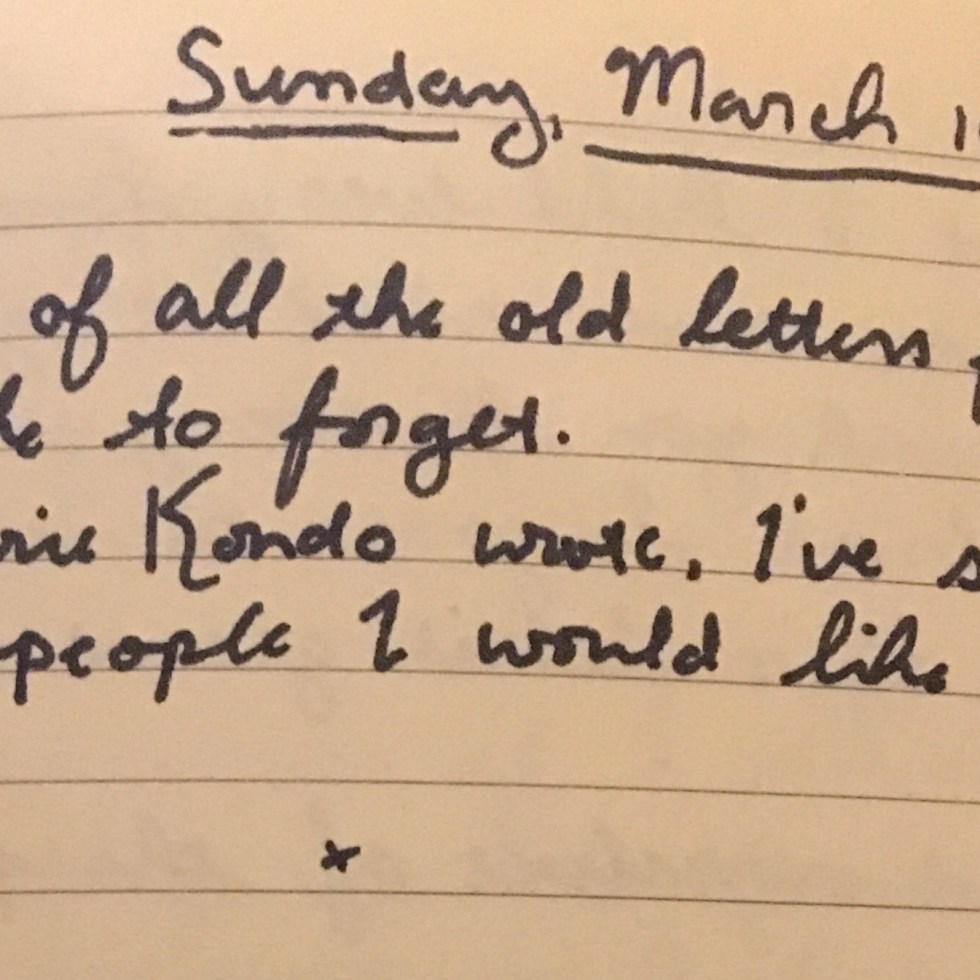 Sunday, March 1
of all the old letters
to forget.
Kondo wrote. I've s
people I would like
*